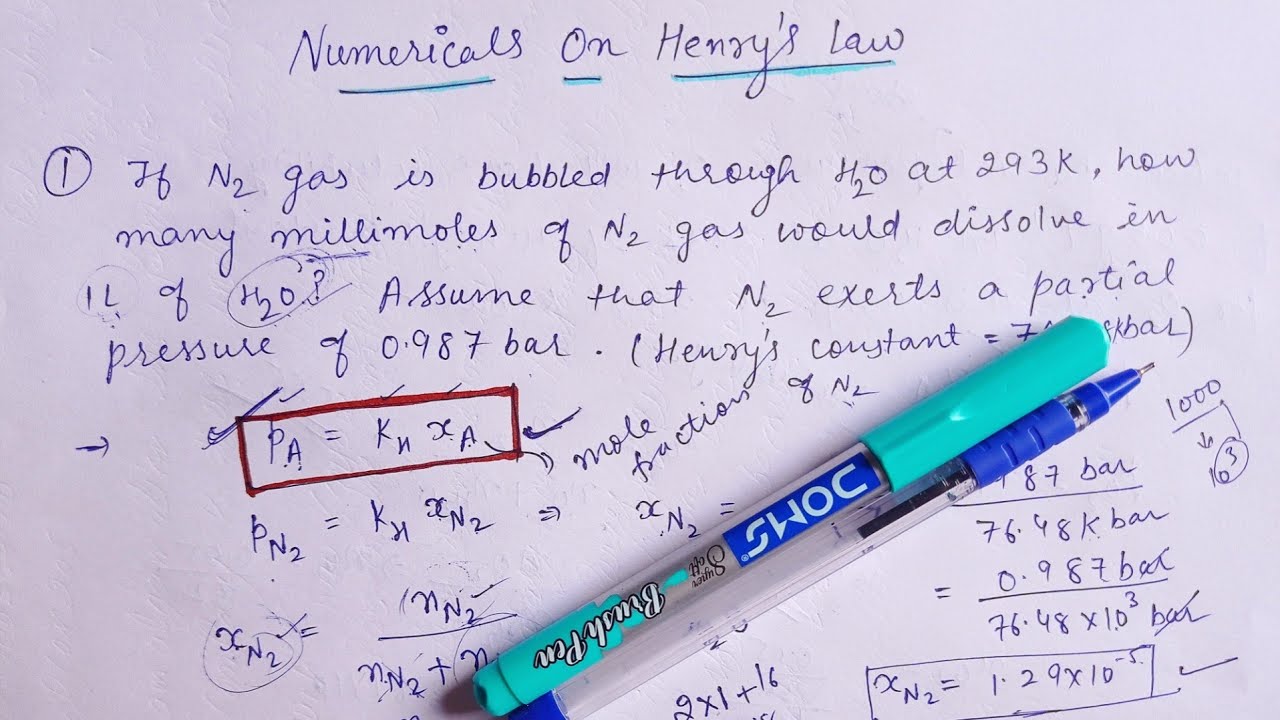 Numericals On Henry's Law
① If N₂ gas is bubbled through H₂O at 293K, how
many millimoles of N₂ gas would dissolve in
1L of H₂O? Assume that N₂ exerts a partial
pressure of 0.987 bar. (Henry's constant = 7 kbar)
→ p_A = K_H x_A
mole
fraction of N₂
1000
10³
p_N₂ = K_H x_N₂ ⇒ x_N₂ =
87 bar
76.48 K bar
= 0.987 bar
76.48 × 10³ bar
x_N₂ = n_N₂
n_N₂ + n
2×1+16
x_N₂ = 1.29×10⁻⁵
DOMS
Super
Soft
Brush Pen